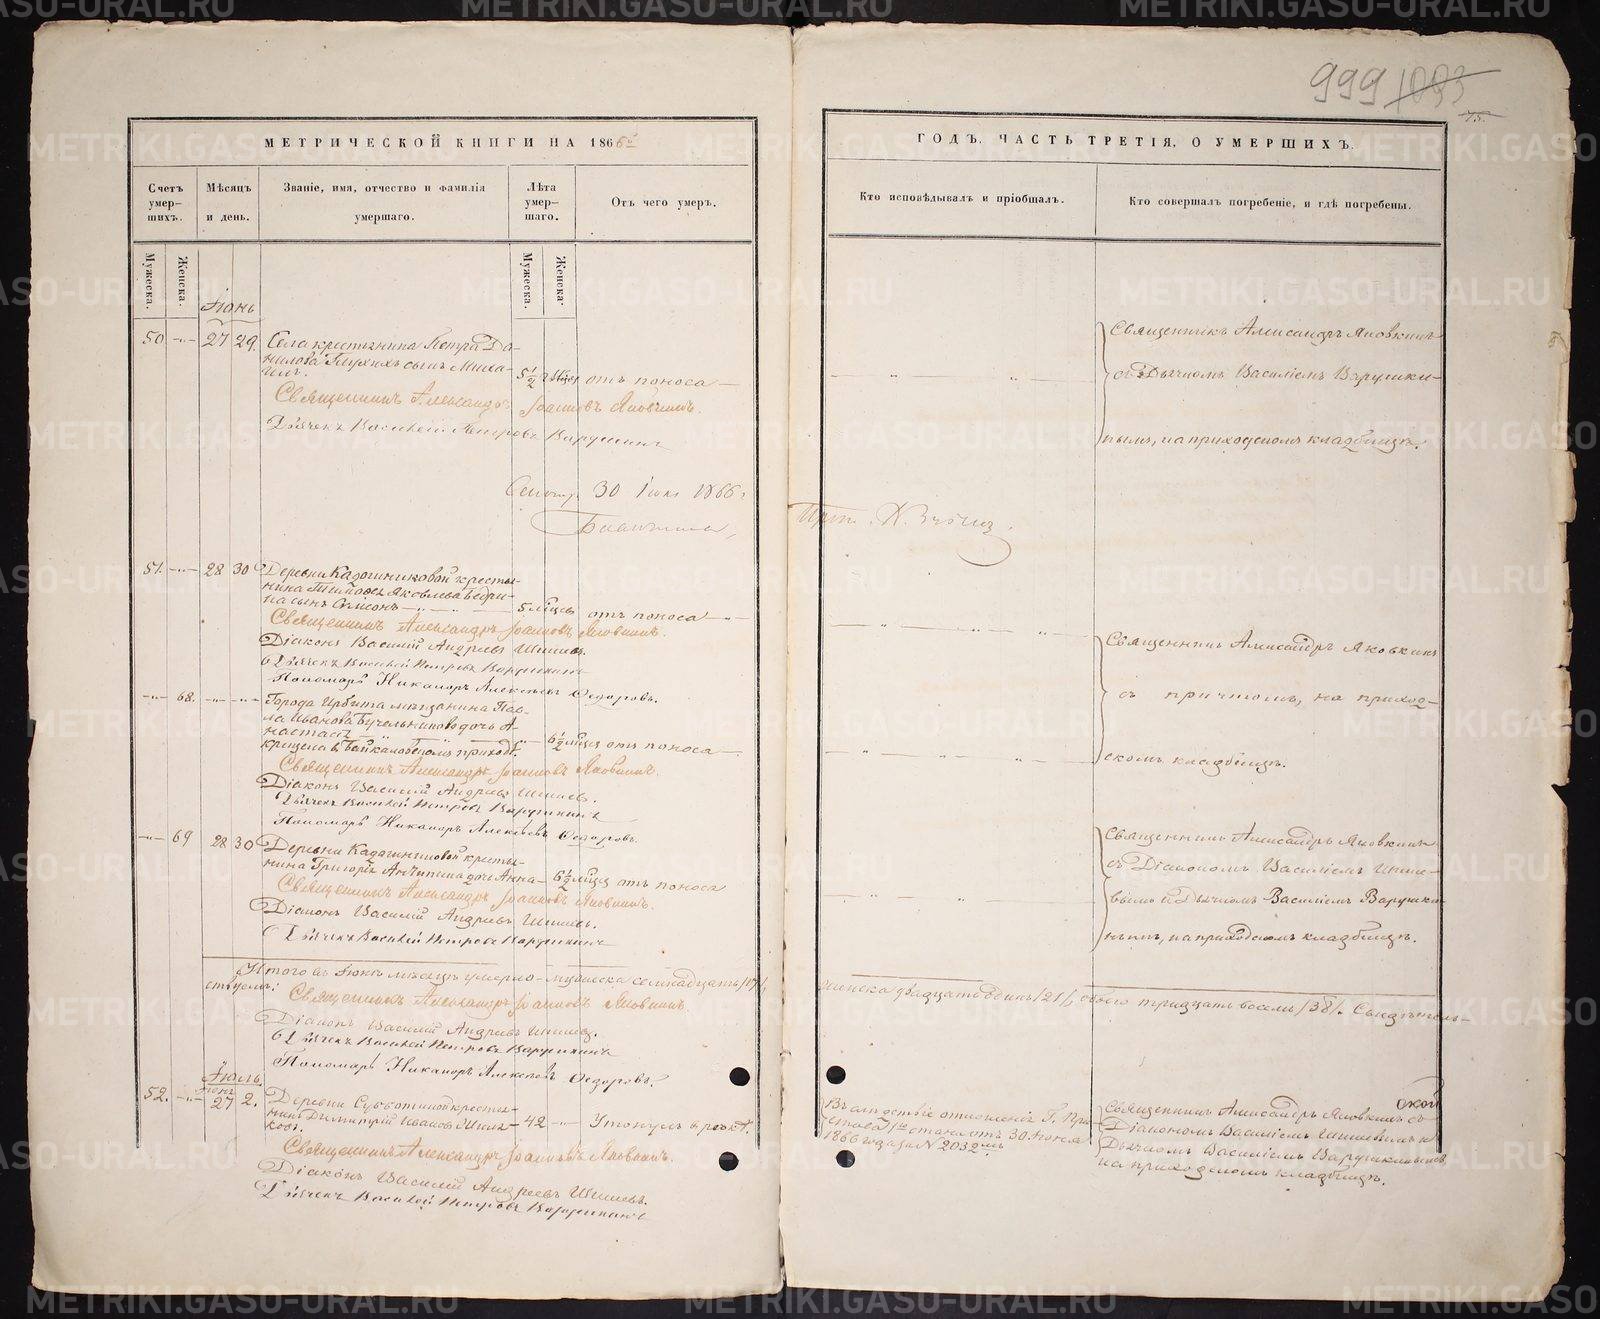 999 1093
75.
МЕТРИЧЕСКОЙ КНИГИ НА 1866й
ГОДЪ, ЧАСТЬ ТРЕТІЯ, О УМЕРШИХЪ.
Счетъ умер-шихъ.
Мѣсяцъ и день.
Званіе, имя, отчество и фамилія умершаго.
Лѣта умер-шаго.
Отъ чего умеръ.
Кто исповѣдывалъ и пріобщалъ.
Кто совершалъ погребеніе, и гдѣ погребены.
Мужеска.
Женска.
Мужеска.
Женска.
Іюнь
50 -„- 27 29. Села крестьянина Петра Да-
нилова Глухихъ сынъ Миха-
илъ. 5½ отъ поноса
Священникъ Александръ Іоанновъ Яковкинъ.
Дьячекъ Василій Петровъ Варушкинъ
Священникъ Александръ Яковкинъ
съ Дьячкомъ Василіемъ Варушки-
нымъ, на приходскомъ кладбищѣ.
30 Іюня 1866 г.
51. -„- 28 30 Деревни Кадочниковой кресть-
янина Яковлева
сынъ Симеонъ 5 мѣцевъ отъ поноса
Священникъ Александръ Іоанновъ Яковкинъ.
Діаконъ Василій Андреевъ Шишевъ.
Дьячекъ Василій Петровъ Варушкинъ
Пономарь Никаноръ Алексѣевъ Ѳедоровъ.
Священникъ Александръ Яковкинъ
съ причтомъ, на приход-
скомъ кладбищѣ.
-„- 68. -„- -„- Города Ирбита мѣщанина Пав-
ла Иванова дочь А-
настасія
крещена въ Байкаловскомъ приходѣ. 6½ мѣцевъ отъ поноса
Священникъ Александръ Іоанновъ Яковкинъ.
Діаконъ Василій Андреевъ Шишевъ.
Дьячекъ Василій Петровъ Варушкинъ
Пономарь Никаноръ Алексѣевъ Ѳедоровъ.
-„- 69 28 30 Деревни Кадочниковой кресть-
янина Григорія Антипина дочь Анна 6½ мѣцевъ отъ поноса
Священникъ Александръ Іоанновъ Яковкинъ.
Діаконъ Василій Андреевъ Шишевъ.
Дьячекъ Василій Петровъ Варушкинъ
Священникъ Александръ Яковкинъ
съ Діакономъ Василіемъ Шише-
вымъ и Дьячкомъ Василіемъ Варушки-
нымъ, на приходскомъ кладбищѣ.
Итого въ Іюнѣ мѣсяцѣ умерло мужеска семнадцать /17/,
женска двадцать одинъ /21/, обоего тридцать восемь /38/. Свидѣтель-
ствуемъ:
Священникъ Александръ Іоанновъ Яковкинъ.
Діаконъ Василій Андреевъ Шишевъ.
Дьячекъ Василій Петровъ Варушкинъ
Пономарь Никаноръ Алексѣевъ Ѳедоровъ.
Іюль
Іюня
52. -„- 27 2. Деревни Субботиной крестья-
нинъ Димитрій Ивановъ 42 -„- Утонулъ въ рѣкѣ.
Священникъ Александръ Іоанновъ Яковкинъ.
Діаконъ Василій Андреевъ Шишевъ.
Дьячекъ Василій Петровъ Варушкинъ
Въ слѣдствіе отношенія Г. При-
става 1го стана отъ 30 Іюня
1866 года за № 2032мъ
Священникъ Александръ Яковкинъ съ
Діакономъ Василіемъ Шишевымъ и
Дьячкомъ Василіемъ Варушкинымъ
на приходскомъ кладбищѣ.
METRIKI.GASO-URAL.RU